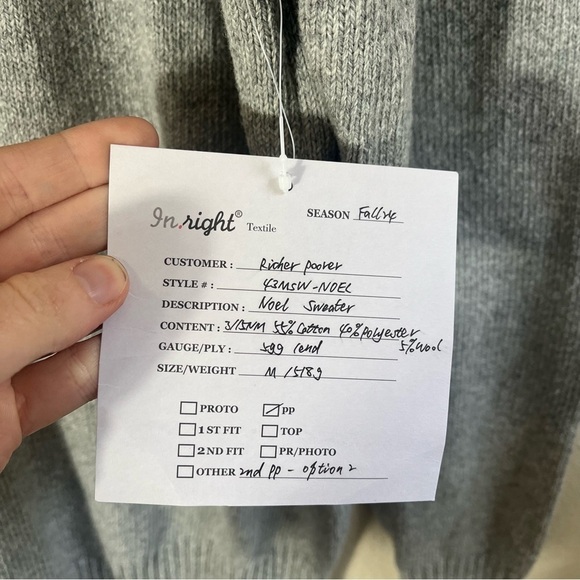 In.right® Textile
SEASON Fall24
CUSTOMER : Richer poorer
STYLE # : 43MSW-NOEL
DESCRIPTION : Noel Sweater
CONTENT : 3/15NM 55% Cotton 40% polyester
5% wool
GAUGE/PLY : 1end
SIZE/WEIGHT M / 518g
PROTO PP
1 ST FIT TOP
2 ND FIT PR/PHOTO
OTHER 2nd pp - option 2